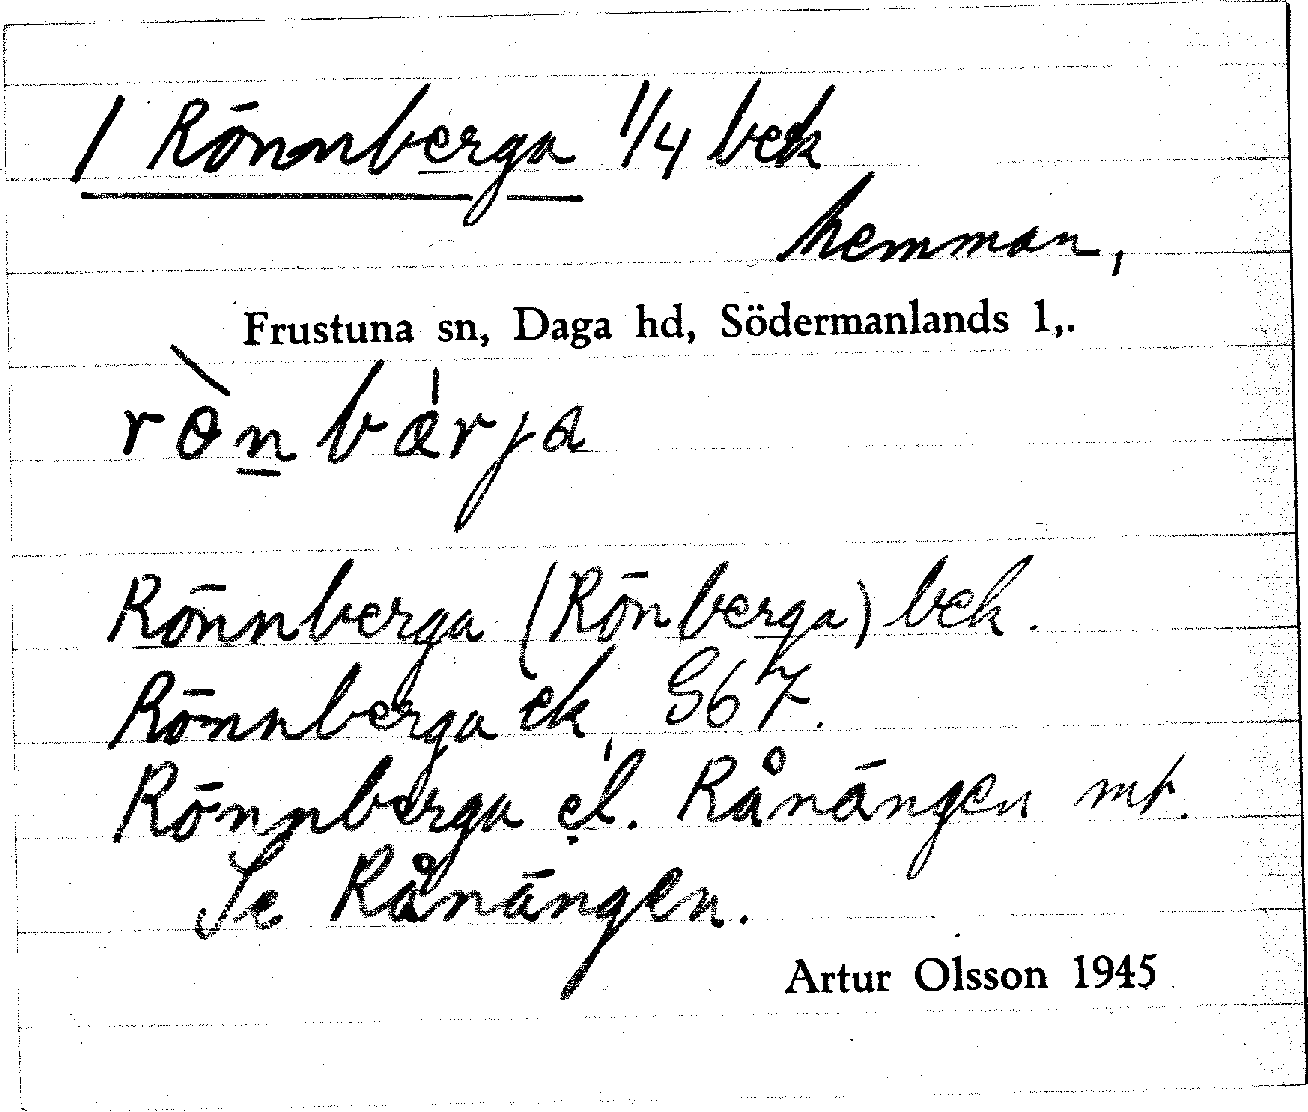 1 Rönnberga 1/4 bek
hemman,
Frustuna sn, Daga hd, Södermanlands l,.
rò̀n bá̀rja
Rönnberga (Rönberga) bek.
Rönnberga ek, S67.
Rönnberga el. Rånängen mt.
Se Rånängen.
Artur Olsson 1945